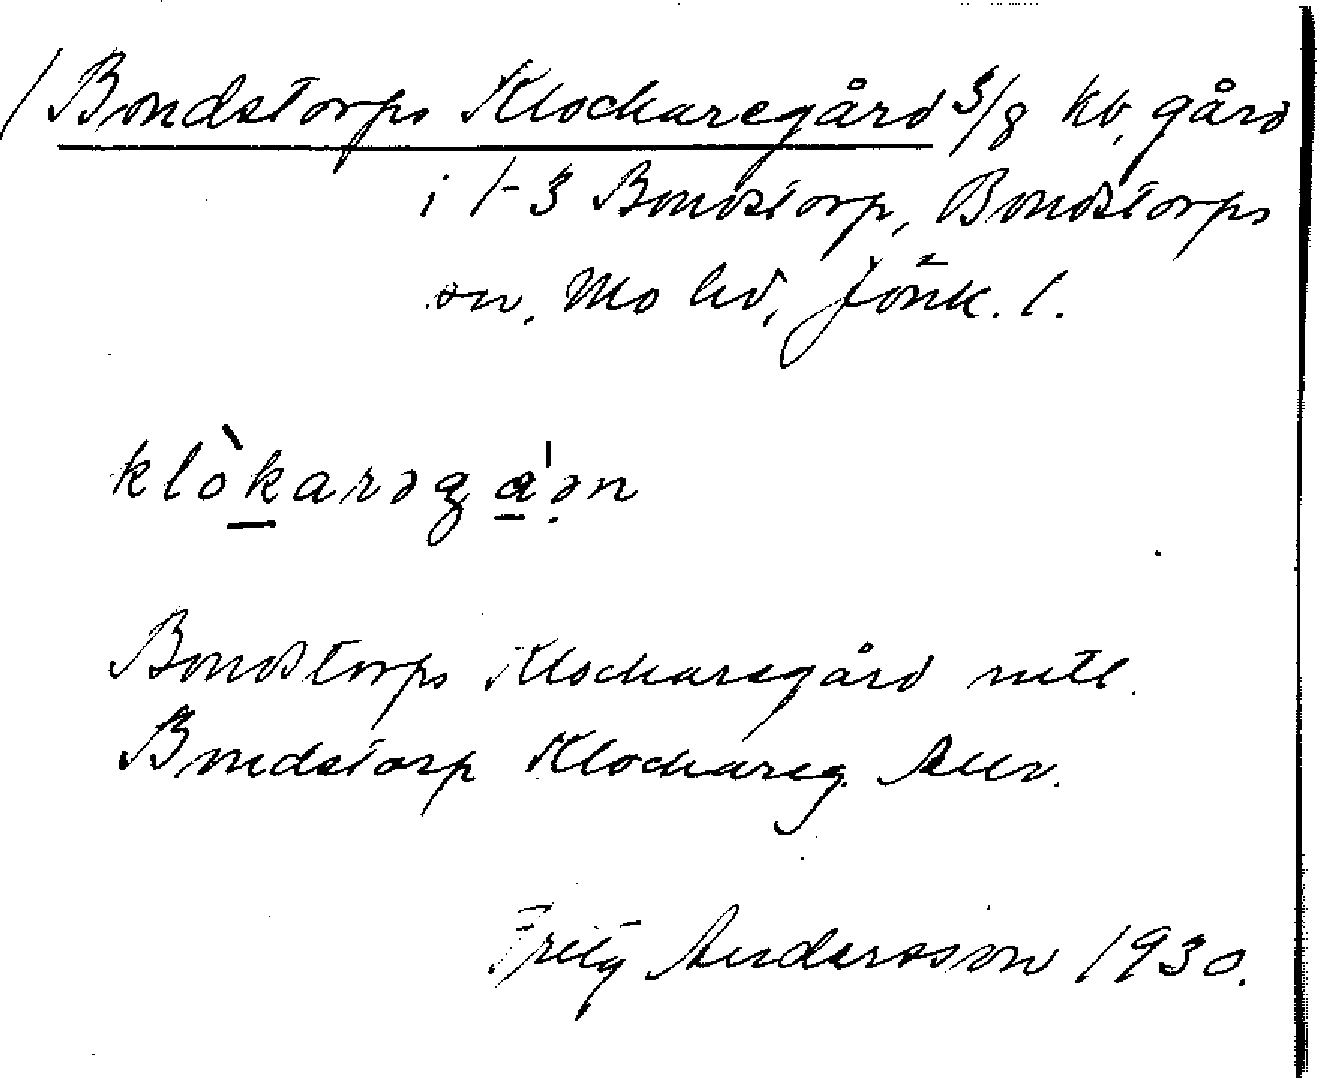 / Bondstorps Klockaregård 3/8 kv. gård
i 1-3 Bondstorp, Bondstorps
sn, Mo hd, Jönk. l.
klòkarəgɑ'ən
Bondstorps Klockaregård
Bondstorp Klockareg.
Fritz Andersson 1930.